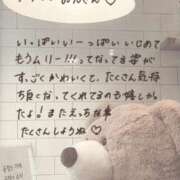 いっぱいいーっぱいいじめて
もうムリー!!!ってなってる姿が
すっごくかわいくて、たくさん気持
ち良くなってくれてるのも嬉しかっ
たよ!またえっちな事
たくさんしようね♡